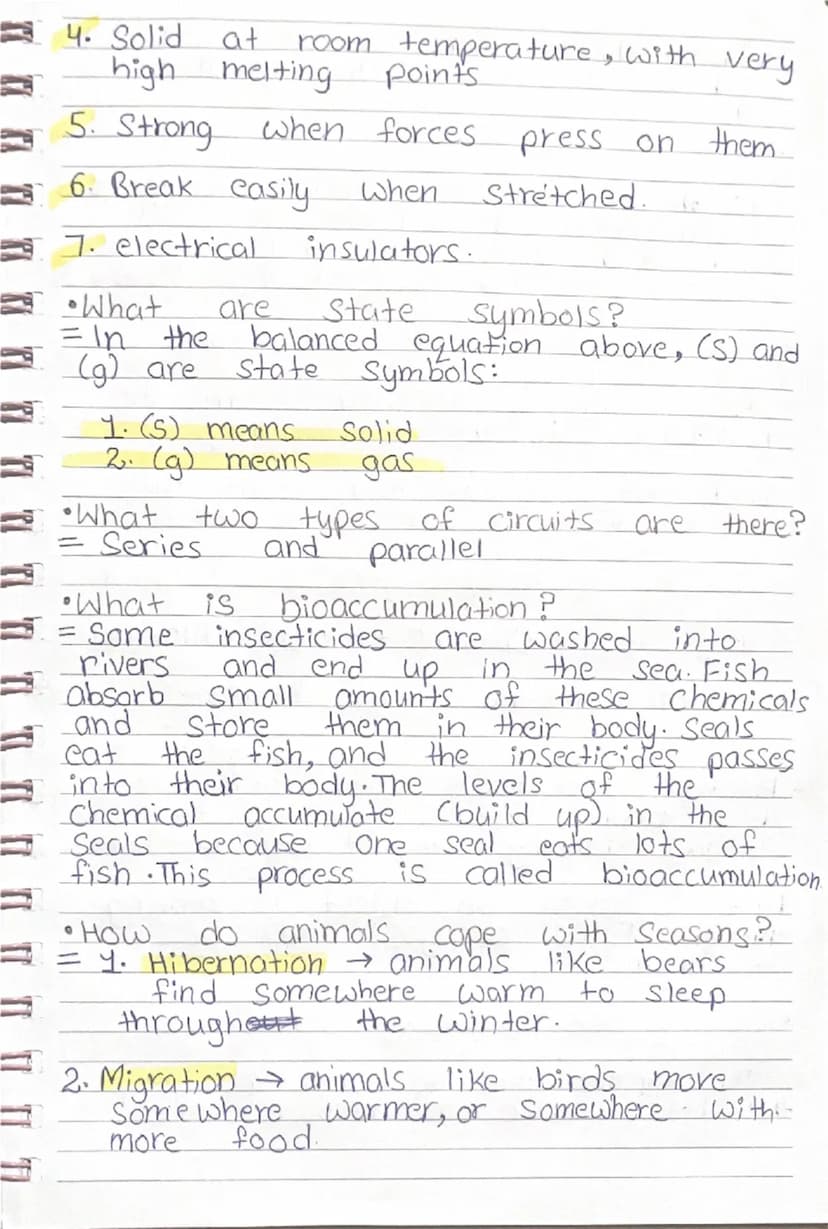 4. Solid at room temperature, with very
high melting points
5. Strong when forces press on them
6. Break easily when stretched.
7. electrical insulators.
•What are state symbols?
= In the balanced equation above, (s) and
(g) are state symbols:
1. (s) means solid
2. (g) means gas
•What two types of circuits are there?
= Series and parallel
•What is bioaccumulation?
= Some insecticides are washed into
rivers and end up in the sea. Fish
absorb small amounts of these chemicals
and store them in their body. Seals
eat the fish, and the insecticides passes
into their body. The levels of the
chemical accumulate (build up) in the
seals because one seal eats lots of
fish. This process is called bioaccumulation
•How do animals cope with seasons?
= 1. Hibernation → animals like bears
find somewhere warm to sleep
through the winter.
2. Migration → animals like birds move
somewhere warmer, or somewhere with
more food.